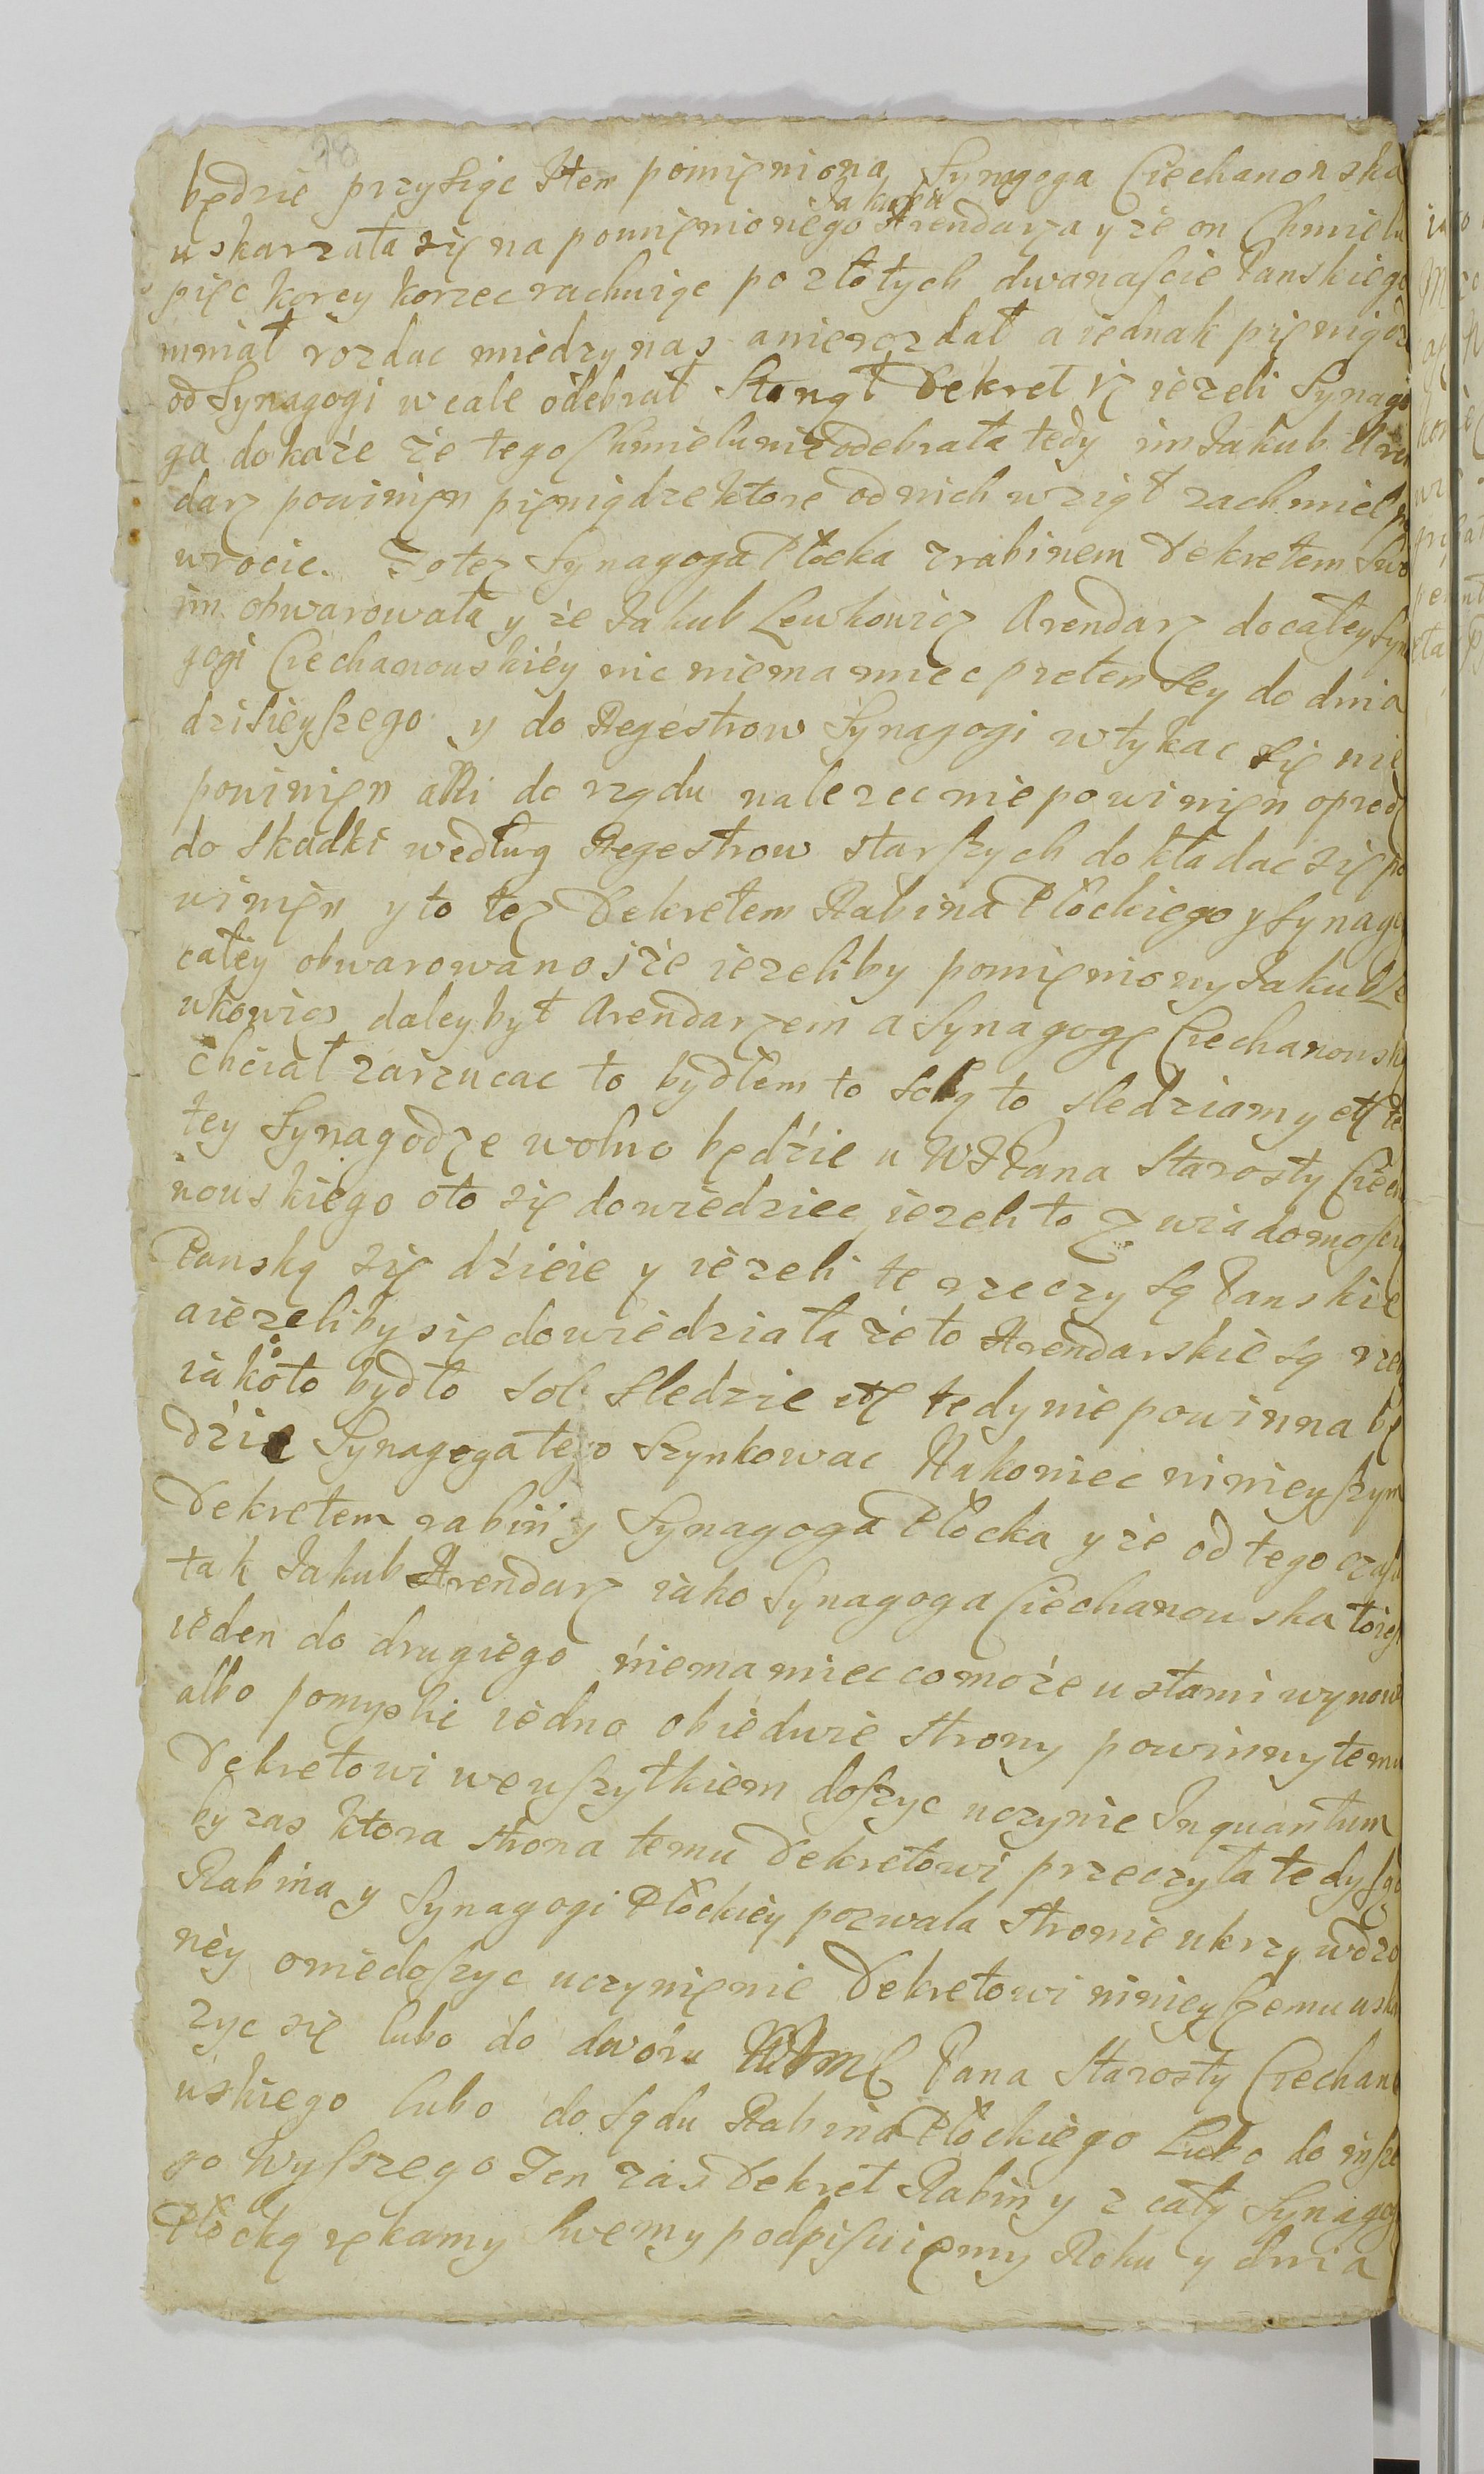 78
będzie przysiąc Item pomięniona Synagoga Ciechanowska
uskarzała się na pomięnionego Jakuba Arendarza y że on Chmielu
pięc korcy korzec rachuiąc po złotych dwanaście Panskiego
mniał rozdac miedzy nas a nierozdał a iednak pięniądz
od Synagogi wcale odebrał Stanął Dekret iż ieżeli Synago
ga dokaże że tego Chmielu nie odebrała tedy im Jakub Aren
darz powinięn pięniądze ktore od nich wziął za chmiel po
wrocic. To też Synagoga Płocka z rabinem Dekretem Swo
im obwarowała y że Jakub Lewkowicz Arendarz do całey Syna
gogi Ciechanowskiéy nic niema miec pretensey do dnia
dzisieyszego y do Regestrow Synagogi wtykac się nie
powinięn ani do rządu nalezec nie powinięn oprocz
do Skadki według Regestrow starszych dokładac się po
winięn y to też Dekretem Rabina Płockiego y Synagogi
całéy obwarowano iże iezeliby pomięniony Jakub Le
wkowicz daley był Arendarzem a Synagogę Ciechanowską
chciał zarzucac to bydłem to solą to sledziamy etc te
tey Synagodze wolno będzie u WJPana Starosty Ciecha
nowskiego oto się dowiedziec iezeli to z wiadomoscią
Panską się dzieie y iezeli te rzeczy są Panskie
a iezeliby się dowiedziała że to Arendarskie są rzeczy
iako to bydło sol sledzie etc tedy nie powinna bę
dzie Synagoga tego Szynkowac Nakoniec ninieyszym
Dekretem rabin y Synagoga Płocka y że od tego czasu
tak Jakub Arendarz iako Synagoga Ciechanowska toiest
ieden do drugiego niema miec co może ustami wymowic
albo pomyslic iedno obiedwie strony powinny temu
Dekretowi we wszytkiem doszyc uczynic Inquantum
by zas ktora strona temu Dekretowi przeczyła tedy sąd
Rabina y Synagogi Płockiéy pozwala stronie ukrzywdzo
néy o niedoszyc uczynięnie Dekretowi ninieyszemu uskar
zyc się lubo do dworu WJMC Pana Starosty Ciechano
wskiego lubo do sądu Rabina Płockiego Lubo do insze
go wyszszego Ten zas Dekret Rabin y z cały Synagogą
Płocką rękamy Swemy podpisuięmy Roku y dnia